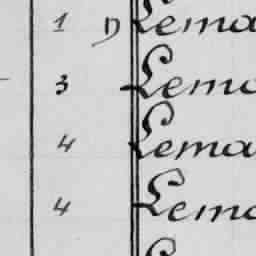 1 D Lema
3 Lema
4 Lema
4 Lema